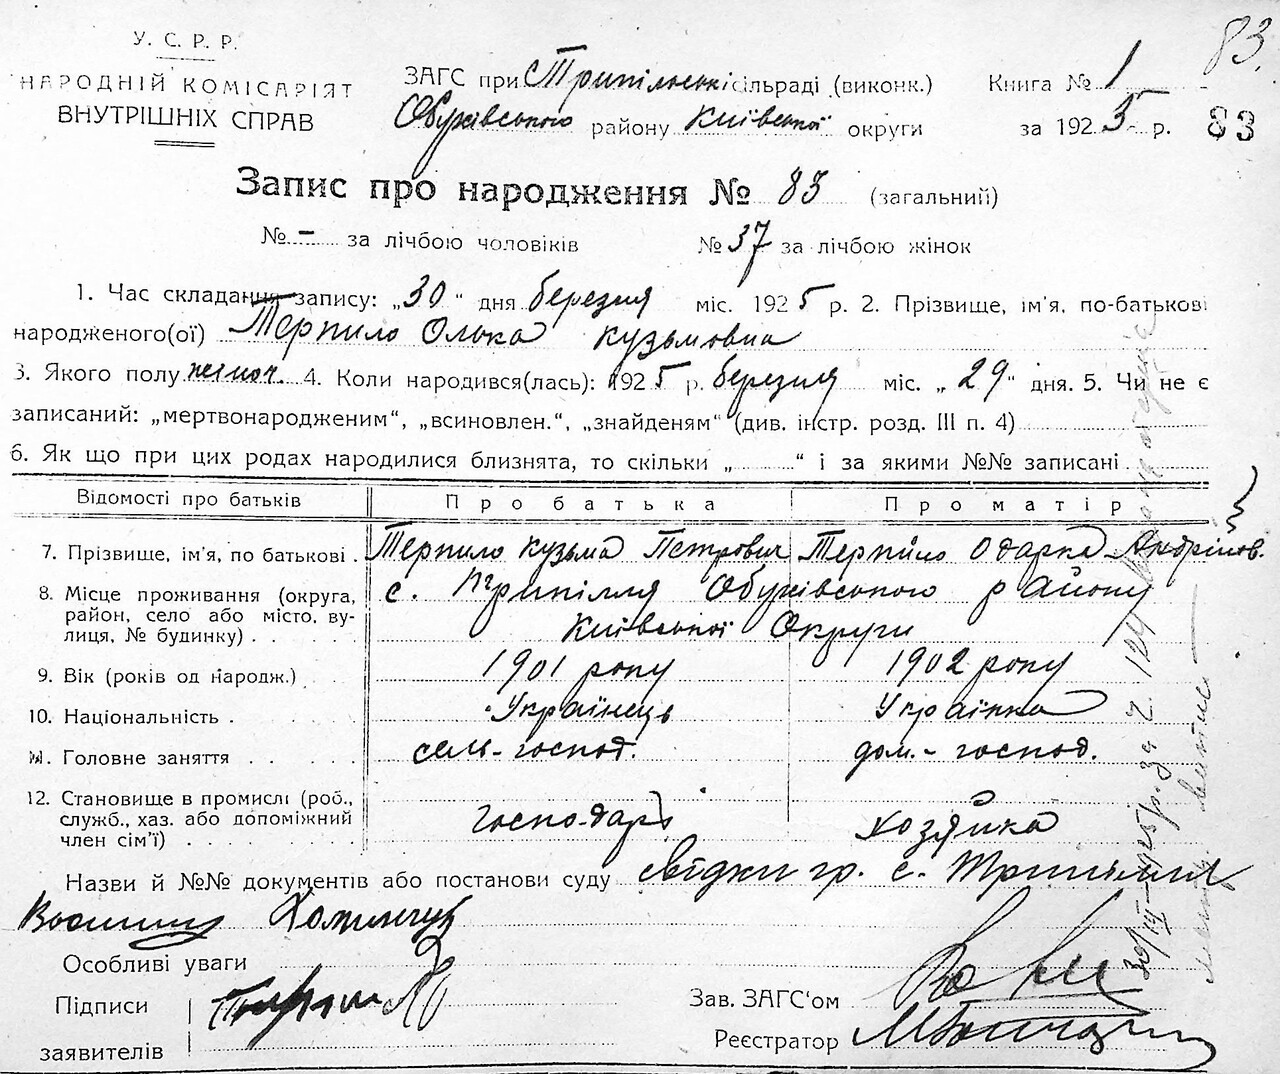 У. С. Р. Р.
НАРОДНІЙ КОМІСАРІЯТ
ВНУТРІШНІХ СПРАВ
ЗАГС при Трипільські сільраді (виконк.)
Обухівського району Київської округи
Книга № 1
за 1925 р.
83.
83
Запис про народження № 83 (загальний)
№ – за лічбою чоловіків № 37 за лічбою жінок
1. Час складання запису: „30" дня березня міс. 1925 р. 2. Прізвище, ім'я, по-батькові
народженого(ої) Терпило Олька Кузьмовна
3. Якого полу жіноч. 4. Коли народився(лась): 1925 р. березня міс. „29" дня. 5. Чи не є
записаний: „мертвонародженим", „всиновлен.", „знайденям" (див. інстр. розд. III п. 4)
6. Як що при цих родах народилися близнята, то скільки „ " і за якими №№ записані
Відомості про батьків Про батька Про матір
7. Прізвище, ім'я, по батькові . Терпило Кузьма Петрович Терпило Одарка Андріїов.
8. Місце проживання (округа,
район, село або місто, ву-
лиця, № будинку) . . . .
с. Трипілля Обухівського району
Київської Округи
9. Вік (років од народж.) 1901 року 1902 року
10. Національність . Українець Українка
11. Головне заняття . . . . . сель-господ. дом.-господ.
12. Становище в промислі (роб.,
служб., хаз. або допоміжний
член сім'ї) . . . . . . . .
господарь хозяйка
Назви й №№ документів або постанови суду свідки гр. с. Трипілля
Особливі уваги
Підписи
заявителів
Зав. ЗАГС'ом
Реєстратор
30/III-1925 р. за ч. 124